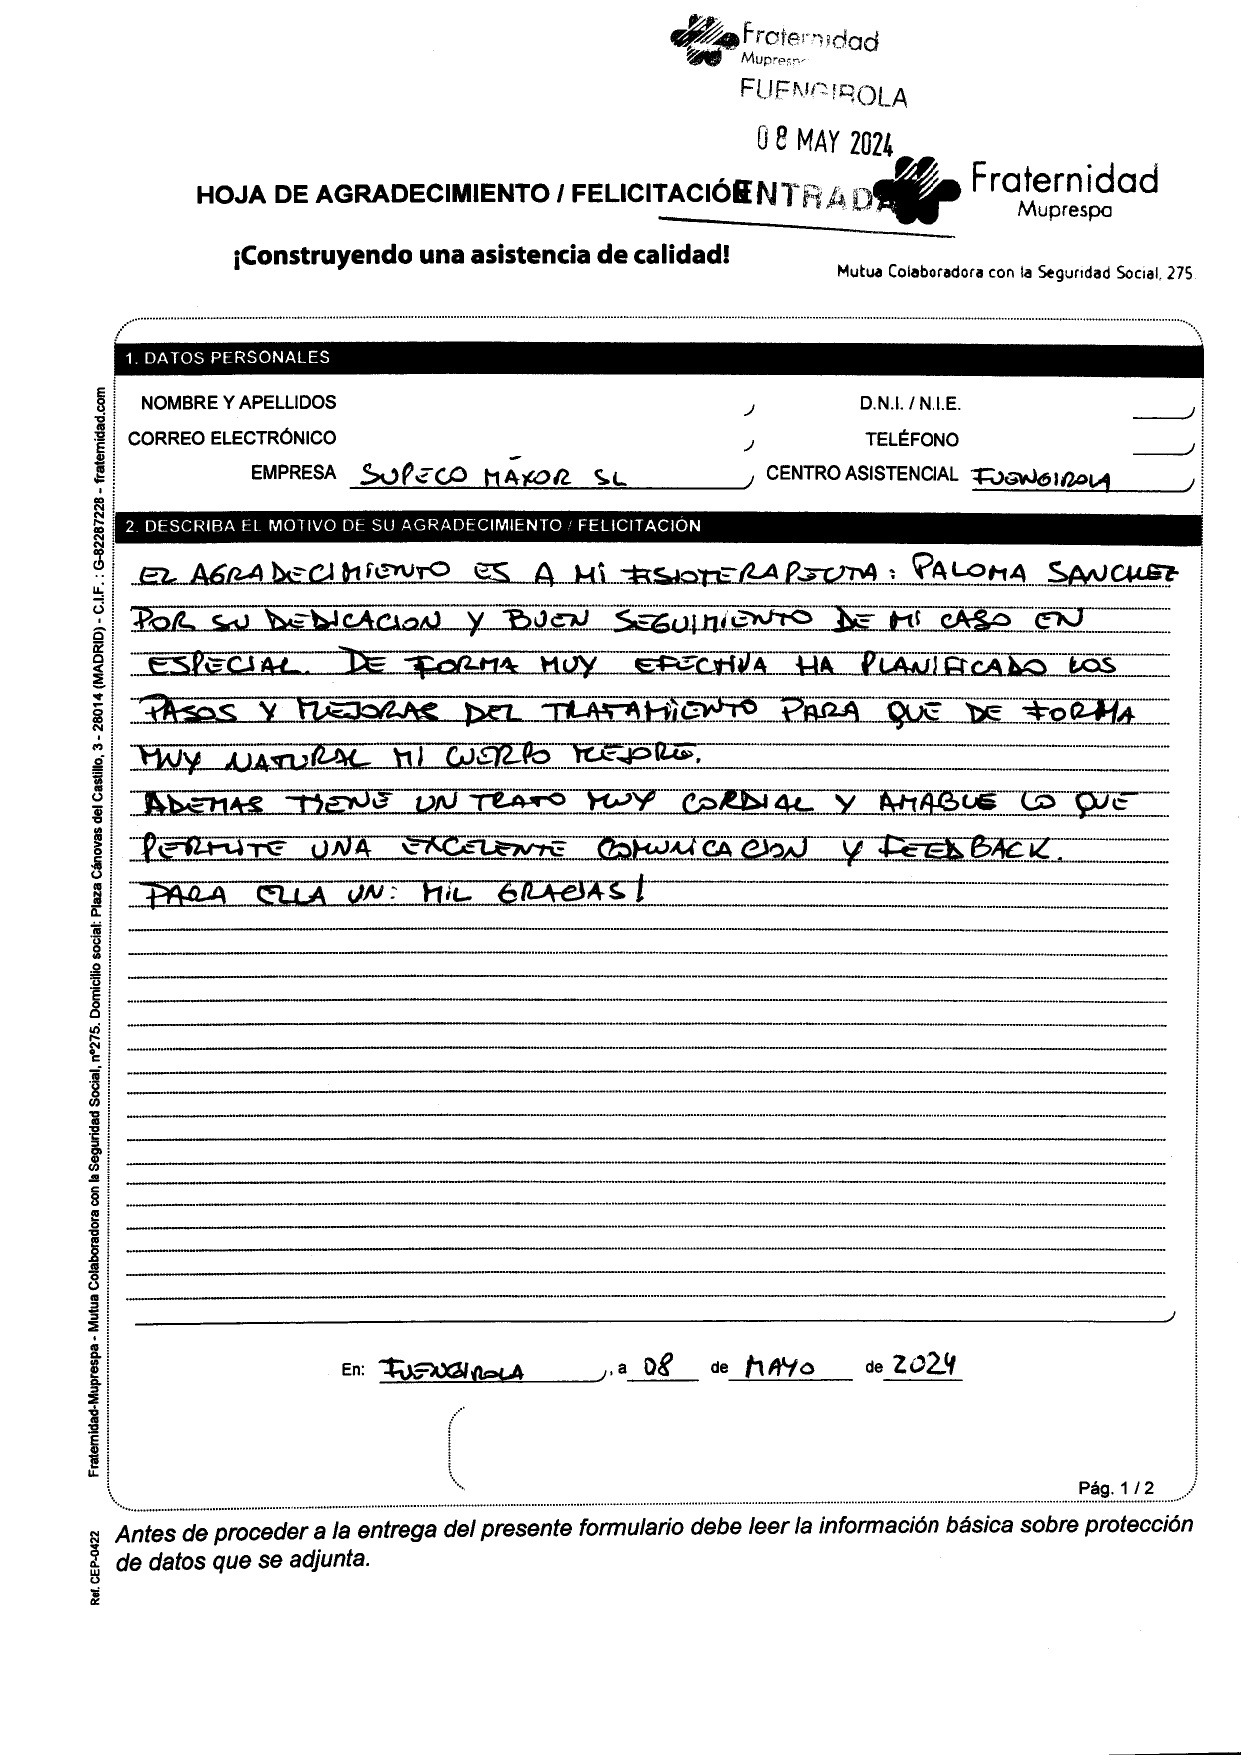 Fraternidad
Muprespa
FUENGIROLA
08 MAY 2024
ENTRADA
Fraternidad
Muprespa
HOJA DE AGRADECIMIENTO / FELICITACIÓN
¡Construyendo una asistencia de calidad!
Mutua Colaboradora con la Seguridad Social, 275
1. DATOS PERSONALES
NOMBRE Y APELLIDOS
D.N.I. / N.I.E.
CORREO ELECTRÓNICO
TELÉFONO
EMPRESA SUPECO MAXOR SL
CENTRO ASISTENCIAL FUENGIROLA
2. DESCRIBA EL MOTIVO DE SU AGRADECIMIENTO / FELICITACIÓN
EL AGRADECIMIENTO ES A MI FISIOTERAPEUTA: PALOMA SANCHEZ
POR SU DEDICACION Y BUEN SEGUIMIENTO DE MI CASO EN
ESPECIAL. DE FORMA MUY EFECTIVA HA PLANIFICADO LOS
PASOS Y MEJORAS DEL TRATAMIENTO PARA QUE DE FORMA
MUY NATURAL MI CUERPO MEJORE.
ADEMAS TIENE UN TRATO MUY CORDIAL Y AMABLE LO QUE
PERMITE UNA EXCELENTE COMUNICACION Y FEEDBACK.
PARA ELLA UN: MIL GRACIAS!
En: FUENGIROLA, a 08 de MAYO de 2024
Pág. 1 / 2
Antes de proceder a la entrega del presente formulario debe leer la información básica sobre protección
de datos que se adjunta.
Fraternidad-Muprespa - Mutua Colaboradora con la Seguridad Social, nº275. Domicilio social: Plaza Cánovas del Castillo, 3 - 28014 (MADRID) - C.I.F. : G-82287228 - fraternidad.com
Ref. CEP-0422